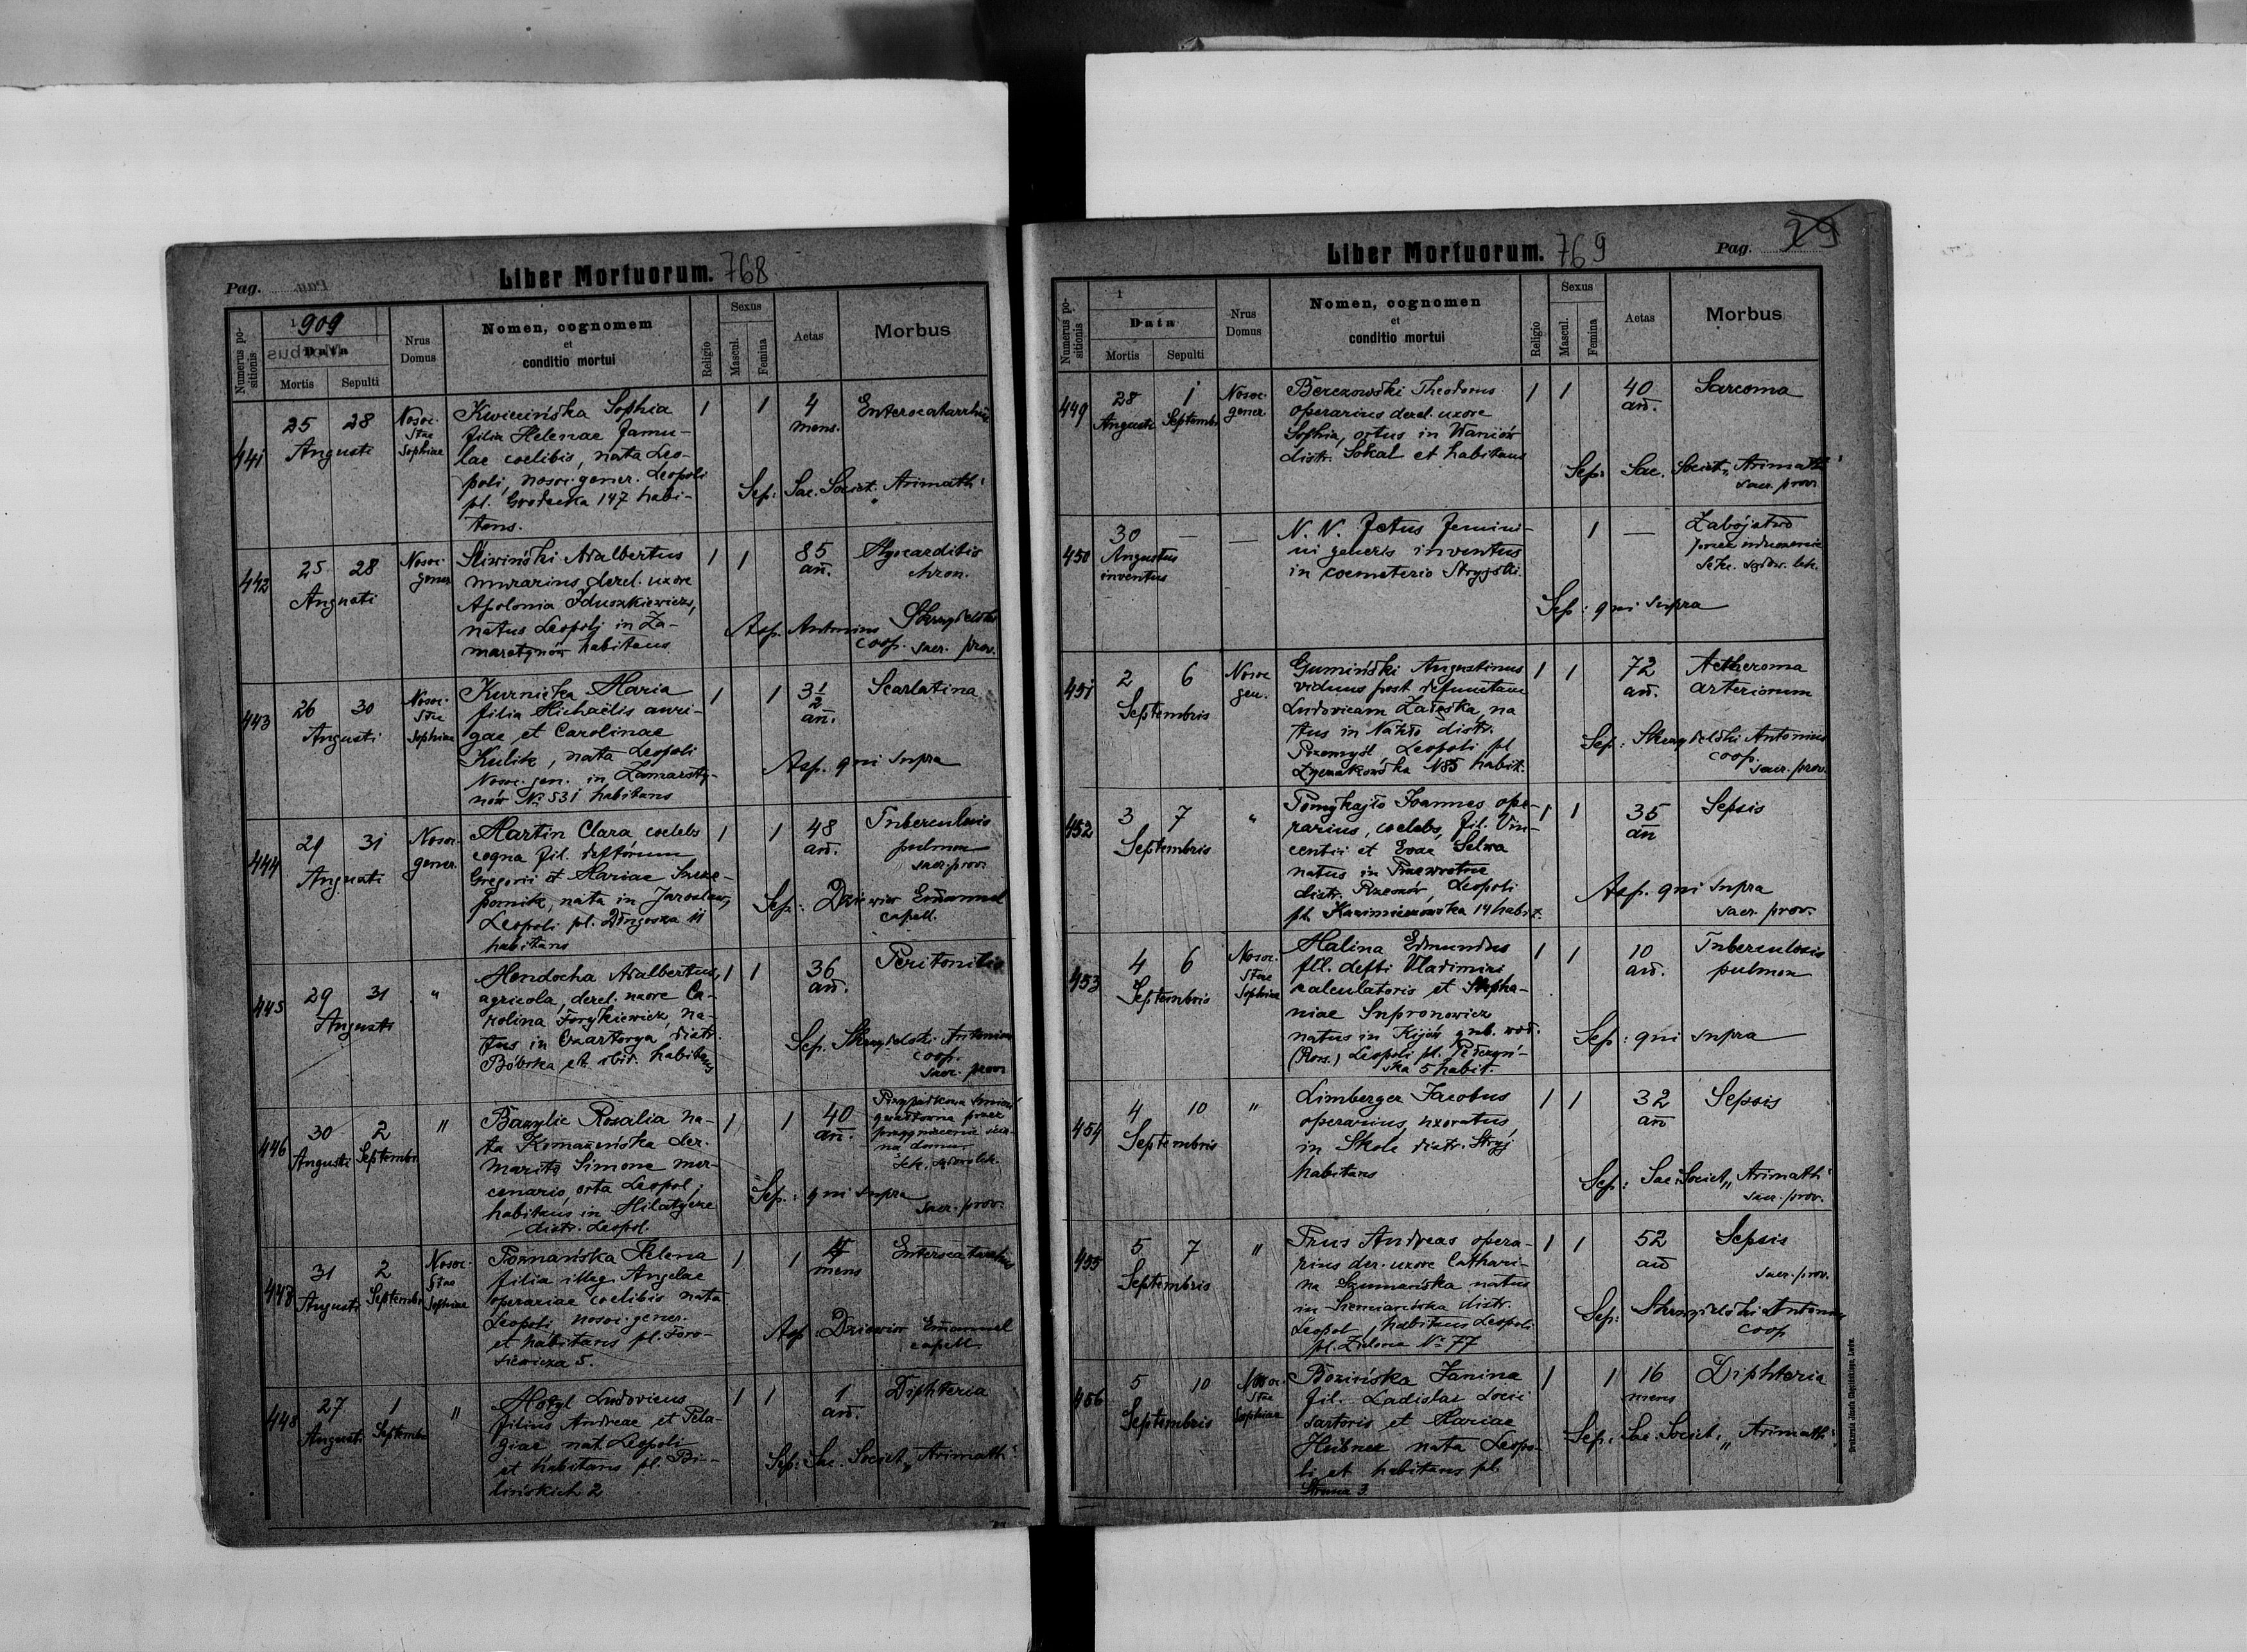 Pag.
Liber Mortuorum. 768
Numerus positionis
1909
Data
Mortis
Sepulti
Nrus Domus
Nomen, cognomem
et
conditio mortui
Religio
Sexus
Mascul.
Femina
Aetas
Morbus
441
25 28
Augusti
Nosoc.
Stae
Sophiae
Kwiecińska Sophia
filia Helenae famu-
lae coelibis, nata Leo-
poli, nosoc. gener. Leopoli
pl. Grodecka 147 habi-
tans.
1 1
4
mens.
Enterocatarrhus
Sep: Sac. Societ. Arimath:
442
25 28
Augusti
Nosoc.
gener
Śliwiński Adalbertus
murarius, derel. uxore
Apolonia
natus Leopoli in Za-
marstynów habitans
1 1
85
añ.
Myocarditis
chron.
Asp. Antonius
coop. sacr. prov.
443
26 30
Augusti
Nosoc.
Stae
Sophiae
Kurnicka Maria
filia Michaëlis auri-
gae et Carolinae
Kulik, nata Leopoli
Nosoc. gen. in Zamarsty-
nów No 531 habitans
1 1
3 1/2
añ.
Scarlatina
Asp. qui supra
444
29 31
Augusti
Nosoc.
gener.
Martin Clara coelebs
filia deftorum
Gregorii et Mariae
nata in Jarosław,
Leopoli pl. Długosza 11
habitans
1 1
48
añ.
Tuberculosis
pulmon
sacr. prov.
Sep: Emanuel
capell.
445
29 31
Augusti
"
Mendocha Adalbertus,
agricola, derel. uxore Ca-
rolina na-
tus in Czartorya distr.
Bóbrka et ibid. habitans
1 1
36
añ.
Peritonitis
Sep. Antonius
coop.
sacr. prov.
446
30 2
Augusti Septembr.
"
Bazylic Rosalia na-
ta der.
marito Simone mer-
cenario, orta Leopoli,
habitans in Hilatycze
distr. Leopol.
1 1
40
añ.
Przypadkowa śmierć
gwałtowna przez
Sep.: qui supra
sacr. prov.
31 2
Augusti Septembr.
Nosoc.
Stae
Sophiae
Poznańska Helena
filia illeg. Angelae
operariae coelibis nata
Leopoli nosoc. gener.
et habitans pl. Toro-
siewicza 5.
1 1
mens
Enterocatarrhus
Asp: Emanuel
capell
448
27 1
Augusti Septembr
"
Motyl Ludovicus
filius Andreae et Pela-
giae nat. Leopoli
et habitans pl. Bi-
lińskich 2
1 1
1
añ.
Diphteria
Sep: Sac. Societ. „Arimath:
Liber Mortuorum. 769
Pag. 29
Numerus positionis
1
Data
Mortis
Sepulti
Nrus Domus
Nomen, cognomen
et
conditio mortui
Religio
Sexus
Mascul.
Femina
Aetas
Morbus
449
28 1
Augusti Septembr
Nosoc.
gener
Berezowski Theodorus
operarius derel. uxore
Sophia, ortus in Waniów
distr. Sokal et habitans
1 1
40
añ.
Sarcoma
Sep: Sac. Societ. „Arimath:
sacr. prov
450
30 — —
Augustus
inventus
N. N. fetus femini-
ni generis inventus
in coemeterio Stryjski.
1 —
Zabójstwo
przez
Sep: qui supra
451
2 6
Septembris
Nosoc
gen.
Gumiński Augustinus
viduus post defunctam
Ludovicam na
tus in Nakło distr.
Przemyśl Leopoli pl
Łyczakowska 185 habit.
1 1
72
añ.
Atheroma
arteriorum
Sep: Antonius
coop.
sacr. prov.
452
3 7
Septembris
"
Joannes ope-
rarius, coelebs, fil. Vin-
centii et Evae Selwa
natus in Przewrotne
distr. Rzeszów, Leopoli
pl. Kazimierzowska 14 habit.
1 1
35
añ
Sepsis
Asp. qui supra
sacr. prov.
453
4 6
Septembris
Nosoc.
Stae
Sophiae
Malina Edmundus
fil. defti Vladimiri
calculatoris et Stepha-
niae Supronowicz
natus in Kijów gub. wod.
(Ross.) Leopoli pl.
ska 5 habit.
1 1
10
añ.
Tuberculosis
pulmon
Sep: qui supra
454
4 10
Septembris
"
Limberger Jacobus
operarius, uxoratus,
in Skole distr. Stryj
habitans
1 1
32
añ
Sepsis
Sep: Sac. Societ. „Arimath:
sacr. prov.
455
5 7
Septembris
"
Prus Andreas opera-
rius der. uxore Cathari-
na Szumańska natus
in distr.
Leopol, habitans Leopoli
pl. Zielona No 77
1 1
52
añ
Sepsis
sacr. prov.
Sep: Antonius
coop
456
5 10
Septembris
Nosoc.
Stae
Sophiae
Janina
fil. Ladislai socii
sartoris et Mariae
Hübner nata Leopo-
li et habitans pl.
3
1 1
16
mens
Diphteria
Sep: Sac. Societ. „Arimath: